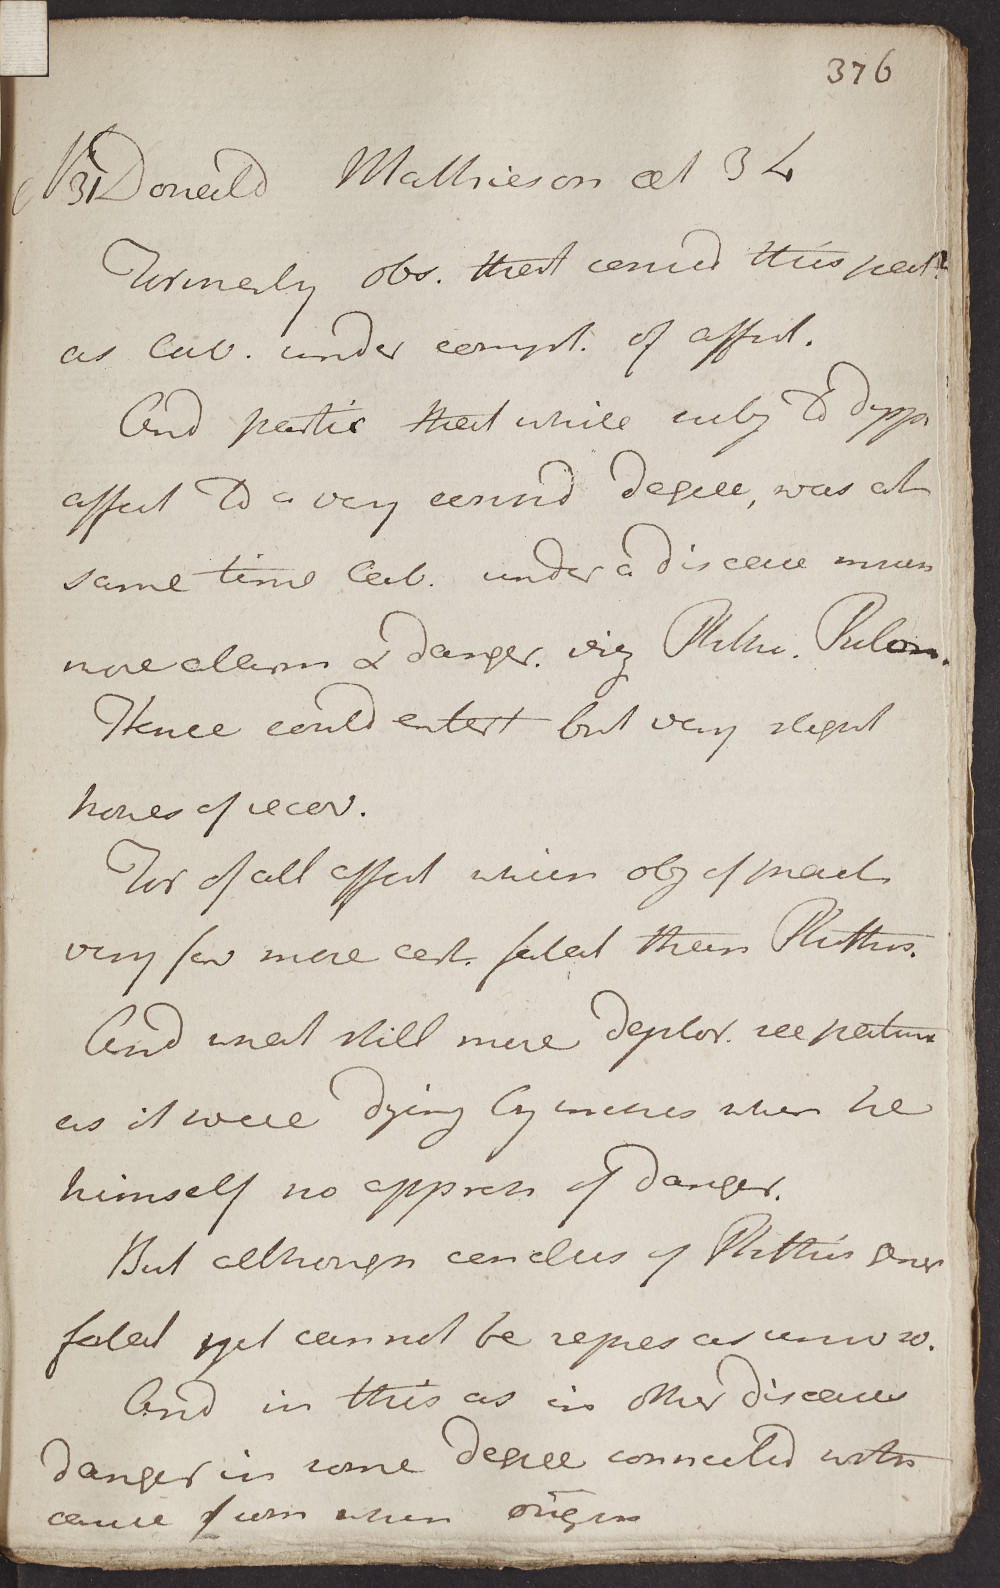 376
No 31 Donald Mathieson æt 34
Formerly obs. that consid this pat.
as lab. under compl. of affect.
And partic that while subj to dysps
affect to a very consid degree, was at
same time lab. under a disease much
more alarm & danger. viz Phthis. Pulom.
Hence could entert but very slight
hopes of recov.
For of all affect which obj of pract
very few more cert. fatal than Phthis.
And what still more deplor. see patient
as it were dying by inches when he
himself no appreh of danger.
But although conclus of Phthis gener
fatal yet cannot be repres as univ so.
And in this as in other diseases
danger in some degree connected with
cause from when origin